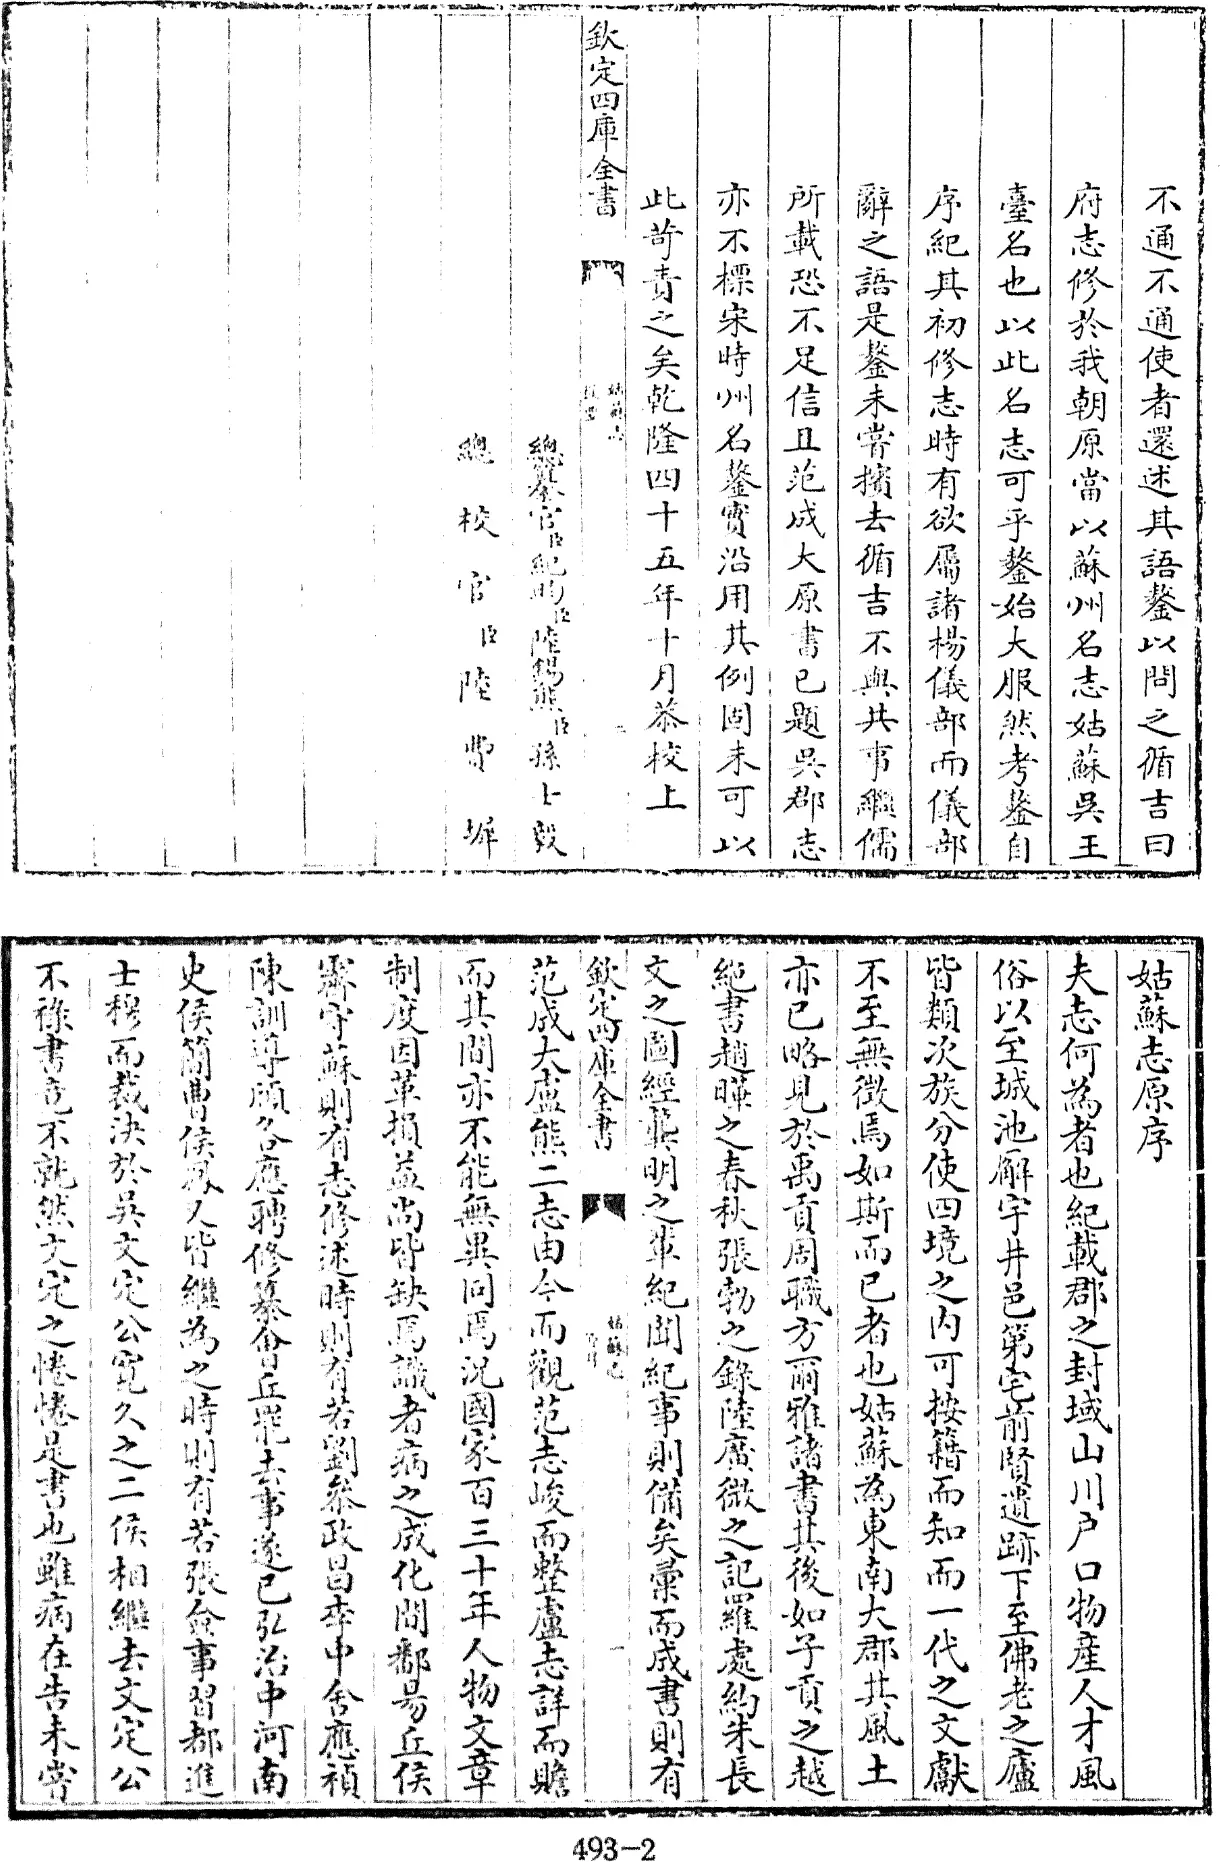 不通不通使者還述其語鏊以問之循吉曰
府志修於我朝原當以蘇州名志姑蘇吳王
臺名也以此名志可乎鏊始大服然考鏊自
序紀其初修志時有欲屬諸楊儀部而儀部
辭之語是鏊未嘗擯去循吉不與共事繼儒
所載恐不足信且范成大原書已題吳郡志
亦不標宋時州名鏊實沿用其例固未可以
此苛責之矣乾隆四十五年十月恭校上
欽定四庫全書
姑蘇志
提要
二
總纂官臣紀昀臣陸錫熊臣孫士毅
總校官臣陸費墀
姑蘇志原序
夫志何為者也紀載郡之封域山川户口物產人才風
俗以至城池廨宇井邑第宅前賢遺跡下至佛老之廬
皆類次族分使四境之内可按籍而知而一代之文獻
不至無徵焉如斯而已者也姑蘇為東南大郡其風土
亦已略見於禹貢周職方爾雅諸書其後如子貢之越
絶書趙曄之春秋張勃之錄陸廣微之記羅處約朱長
文之圖經龔明之輩紀聞紀事則備矣彙而成書則有
欽定四庫全書
姑蘇志
原序
一
范成大盧熊二志由今而觀范志峻而整盧志詳而贍
而其間亦不能無異同焉況國家百三十年人物文章
制度因革損益尚皆缺焉識者病之成化間鄱昜丘侯
霽守蘇則有志修述時則有若劉參政昌李中舍應禎
陳訓導頎各應聘修纂會丘罷去事遂已弘治中河南
史侯簡曹侯鳳又皆繼為之時則有若張僉事習都進
士穆而裁決於吳文定公寛久之二侯相繼去文定公
不祿書竟不就然文定之惓惓是書也雖病在告未嘗
493-2